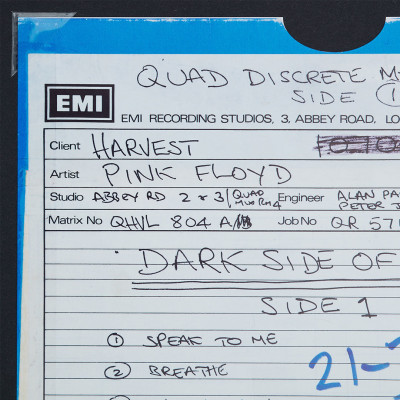 QUAD DISCRETE M
SIDE 1
EMI
EMI RECORDING STUDIOS, 3, ABBEY ROAD, LO
Client HARVEST
Artist PINK FLOYD
Studio ABBEY RD 2 & 3 / QUAD Engineer ALAN PA
PETER J
Matrix No QHVL 804 A Job No QR 571
DARK SIDE OF
SIDE 1
① SPEAK TO ME
② BREATHE
21-